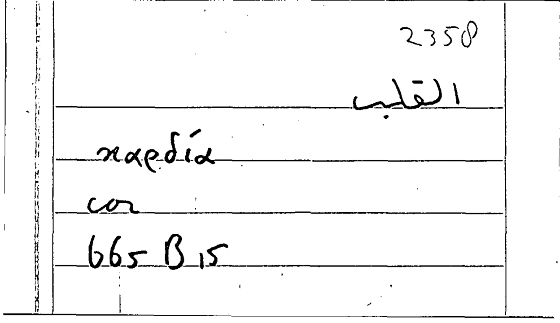 2358
القلب
καρδία
cor
665 B 15